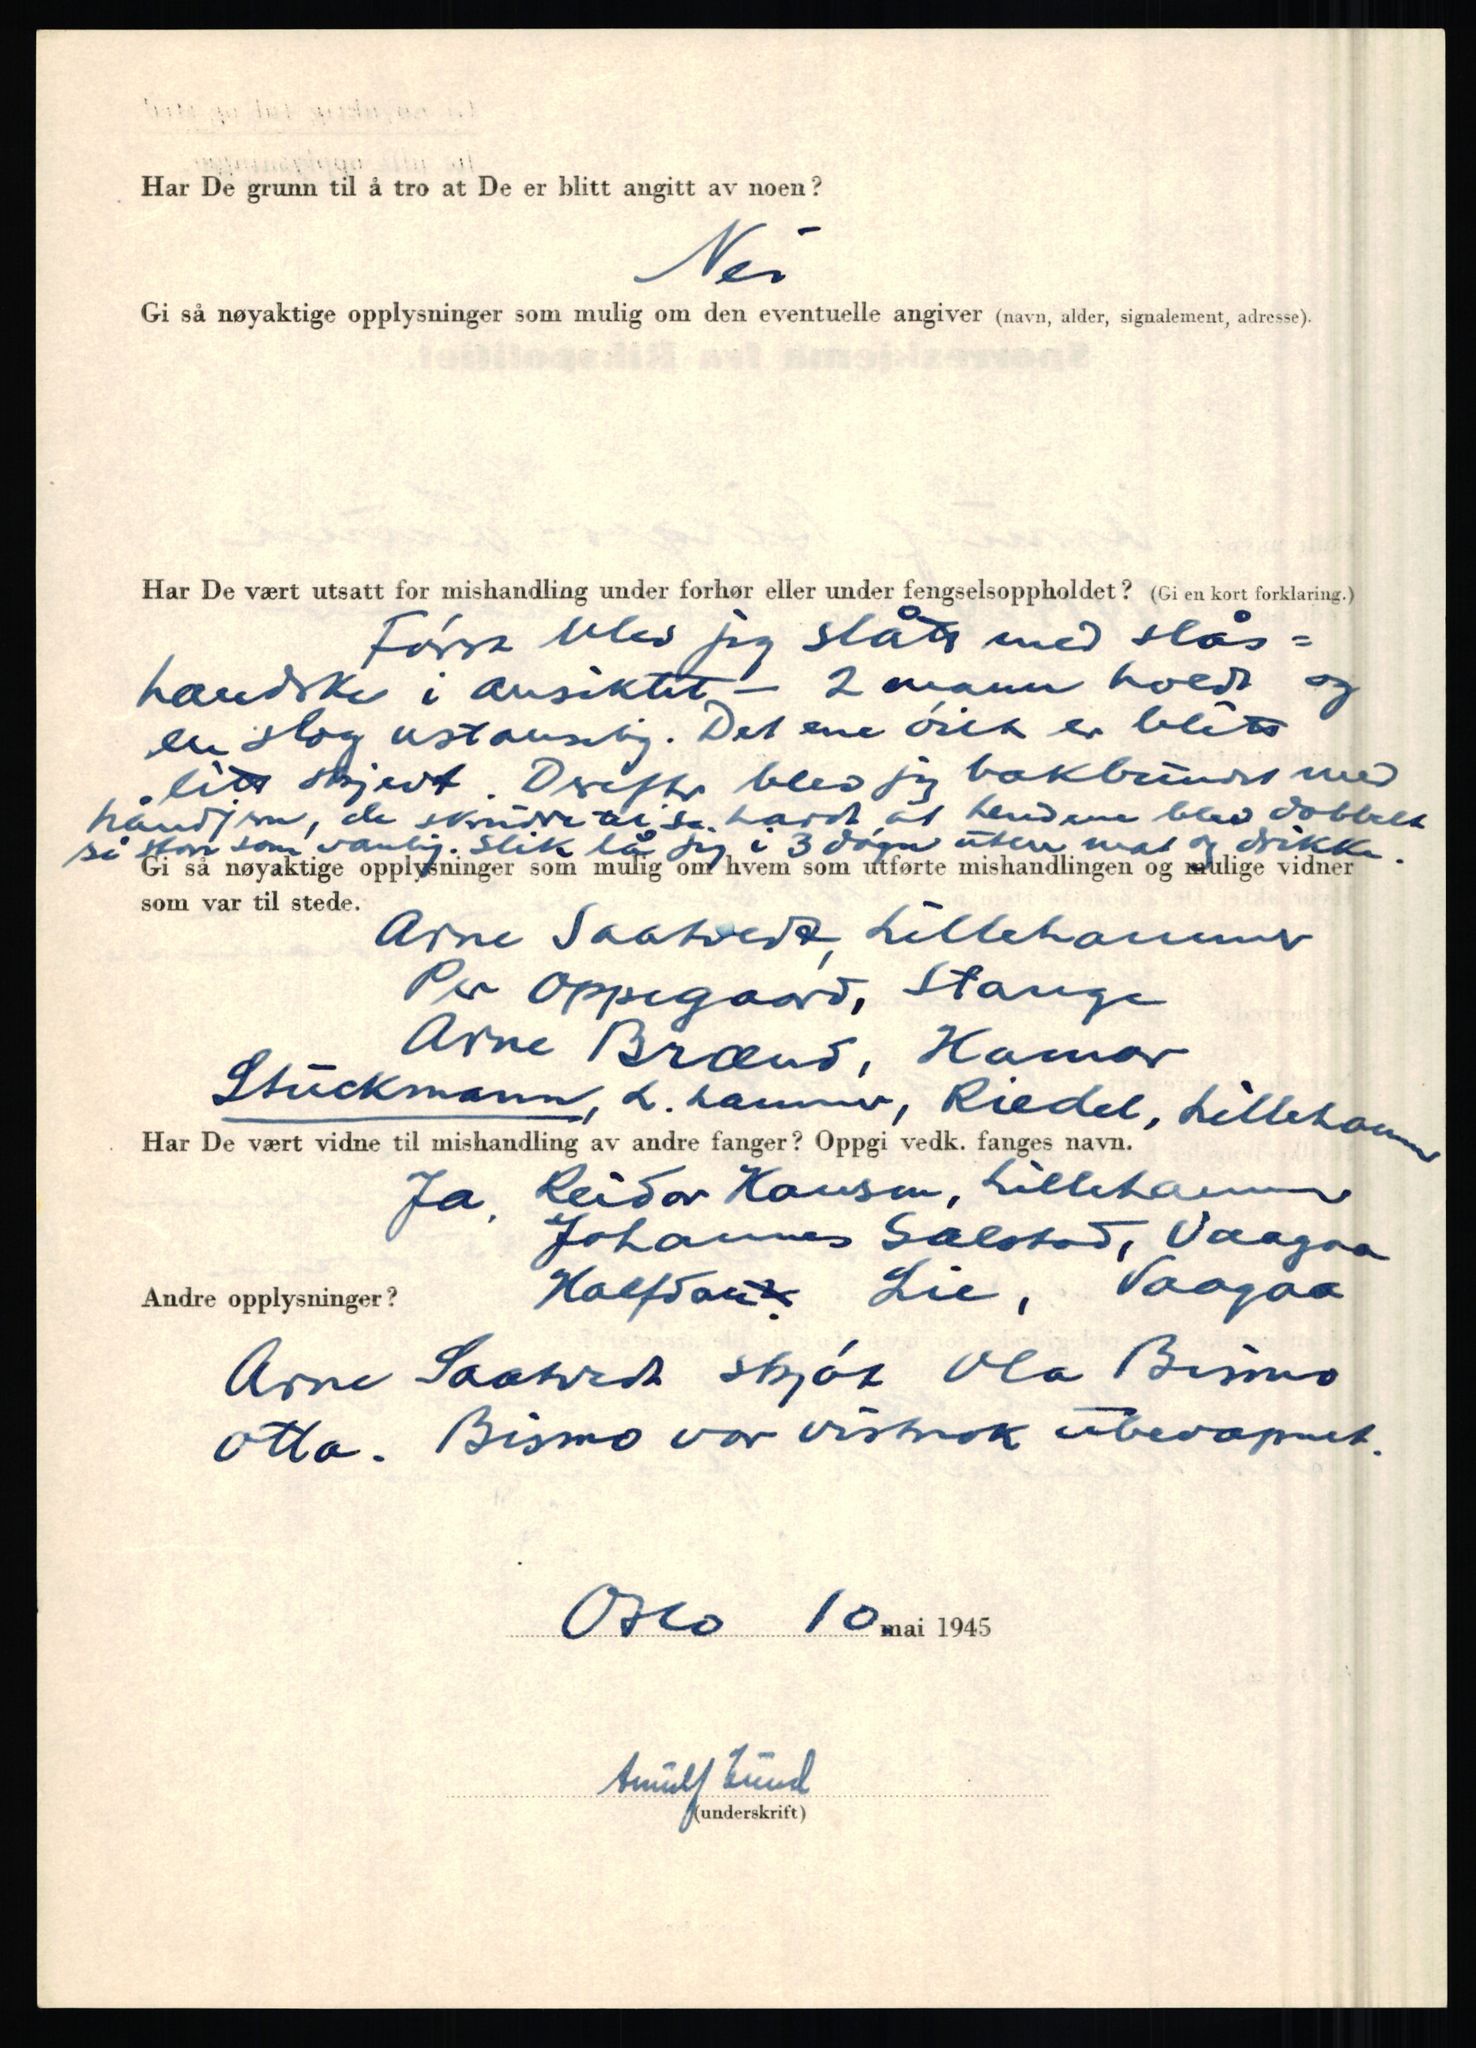 Har De grunn til å tro at De er blitt angitt av noen?
Nei
Gi så nøyaktige opplysninger som mulig om den eventuelle angiver (navn, alder, signalement, adresse).
Har De vært utsatt for mishandling under forhør eller under fengselsoppholdet? (Gi en kort forklaring.)
Først blev jeg slått med slås=
handske i ansiktet – 2 mann holdt og
en slog ustanselig. Det ene öiet er blitt
litt skjevt. Derefter blev jeg bakbundet med
håndjern, de skrudde til så hardt at hendene blev dobbelt
så store som vanlig. Slik lå jeg i 3 døgn uten mat og drikke.
Gi så nøyaktige opplysninger som mulig om hvem som utførte mishandlingen og mulige vidner
som var til stede.
Arne Saatvedt, Lillehammer
Per Oppegaard, Stange
Arne Brænd, Hamar
Stuckmann, L.hammer, Riedel, Lillehammer
Har De vært vidne til mishandling av andre fanger? Oppgi vedk. fanges navn.
Ja, Reidar Hansen, Lillehammer
Johannes Sælstad, Vaagaa
Andre opplysninger? Halfdan Lie, Vaagaa
Arne Saatvedt skjót Ola Bismo
Otta. Bismo var vistnok ubevapnet.
Oslo 10 mai 1945
Arnulf Lund
(underskrift)